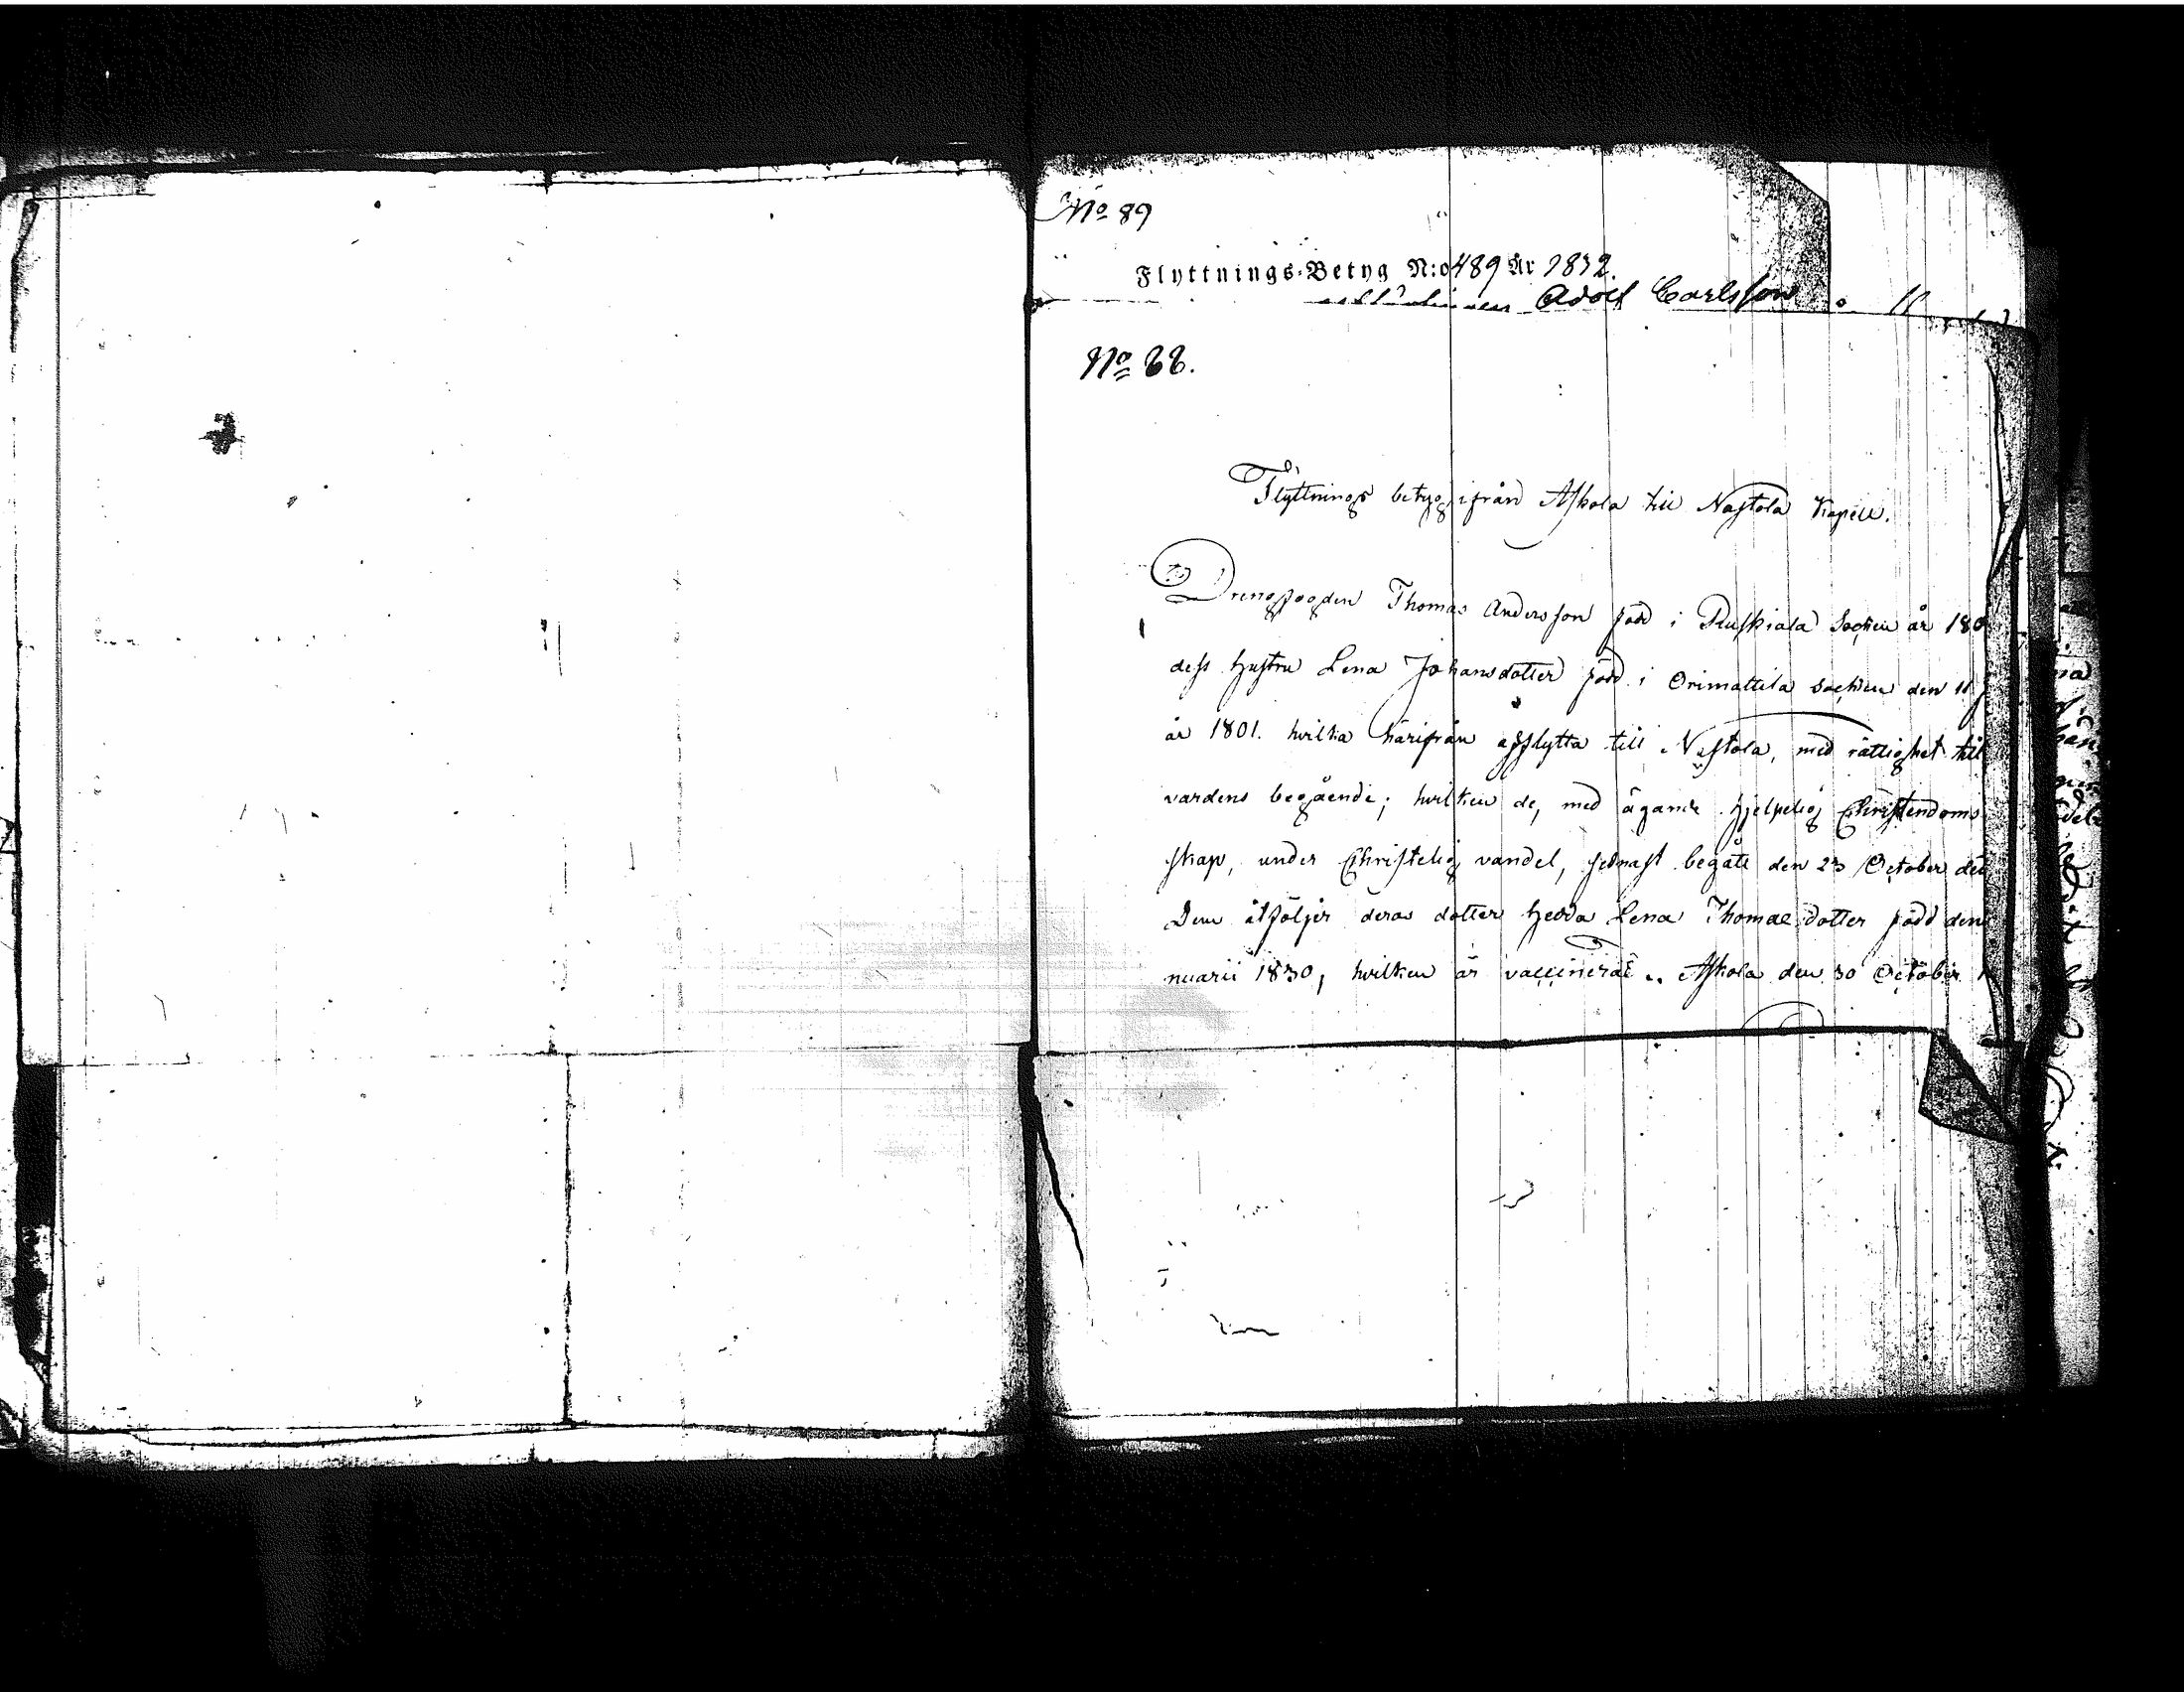 No 89
Flyttnings-Betyg N:o 489 År 1832.
Adolf Carlsson
No 88.
Flyttnings betyg ifrån Askola till Nastola Kapell.
Drengfogden Thomas Andersson född i Ruskiala Sochen år 180
dess hustru Lena Johansdotter född i Orimattila sochen den 11
år 1801. hvilka härifrån afflytta till Nastola, med rättighet till
vardens begående; hvilken de, med ägande hjelpelig Christendoms
skap, under Christelig vandel, sednast begått den 23 October det
Dem åtföljer deras dotter Hedda Lena Thomaedotter född den
nuarii 1830, hvilken är vaccinerad.. Askola den 30 October 1